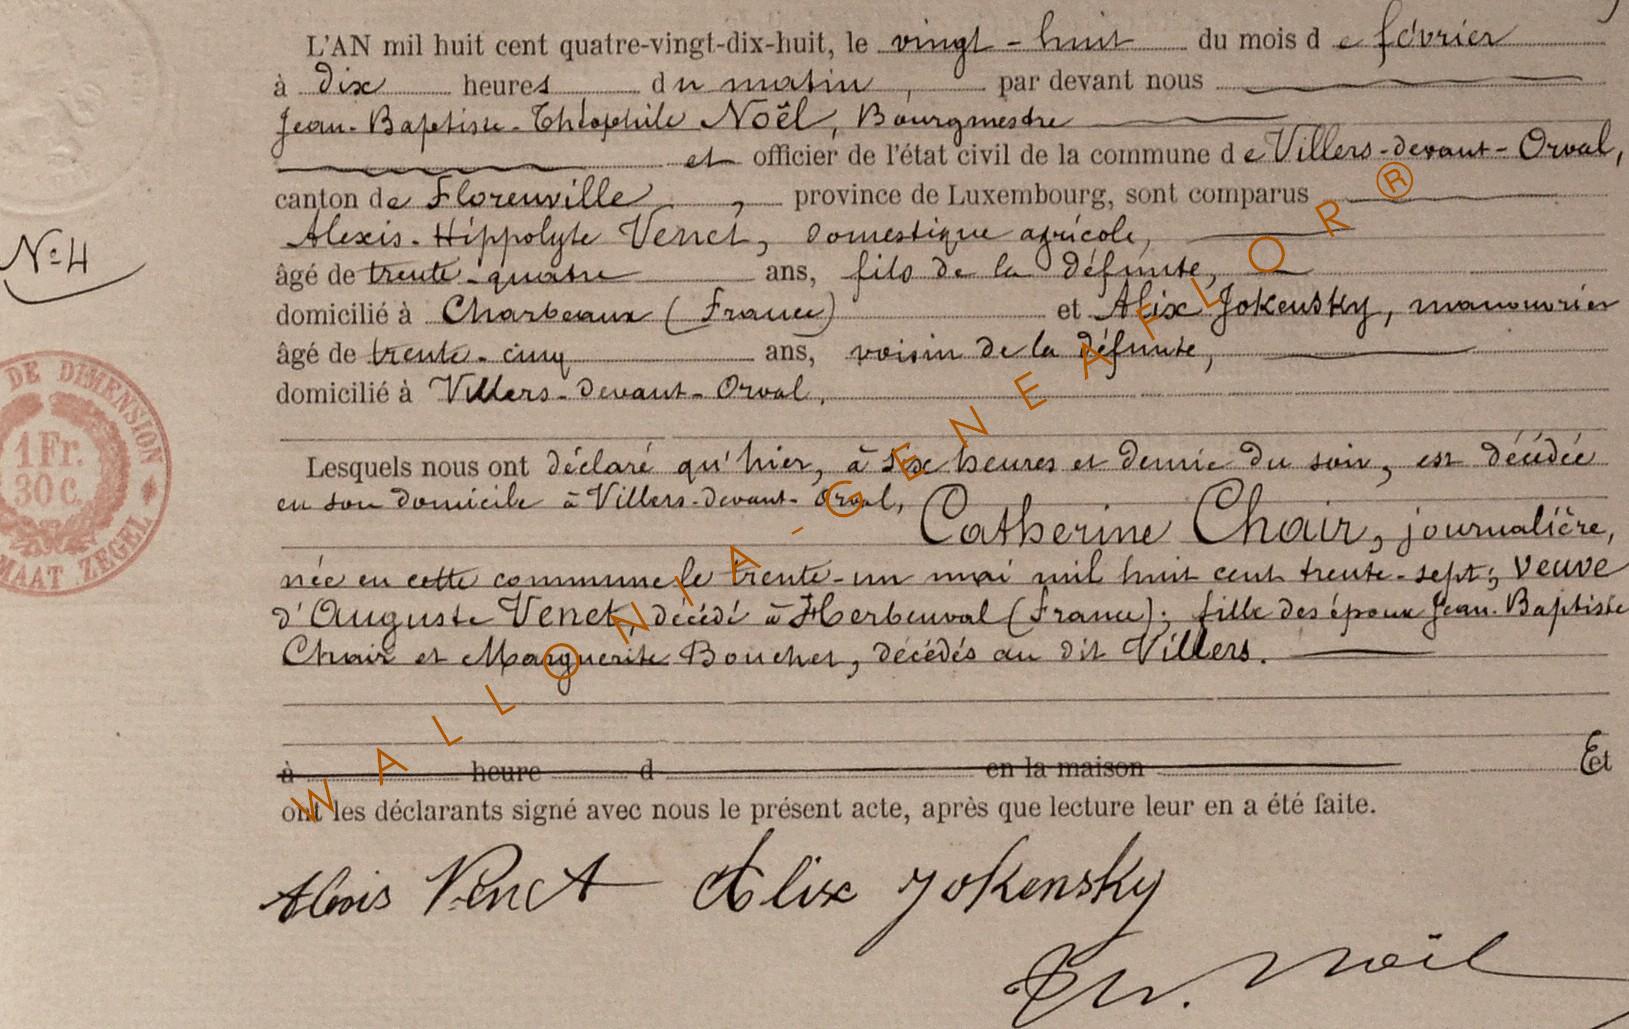 L'AN mil huit cent quatre-vingt-dix-huit, le vingt-huit du mois de février
à dix heures du matin, par devant nous
Jean-Baptiste-Théophile Noël, Bourgmestre
et officier de l'état civil de la commune de Villers-devant-Orval,
canton de Florenville, province de Luxembourg, sont comparus
N° 4
Alexis-Hippolyte Venet, domestique agricole,
âgé de trente-quatre ans, fils de la défunte,
domicilié à Charbeaux (France) et Alix Jokensky, manouvrier
âgé de trente-cinq ans, voisin de la défunte,
domicilié à Villers-devant-Orval,
DE DIMENSION
1 Fr.
30 C.
MAAT ZEGEL
Lesquels nous ont déclaré qu'hier, à six heures et demie du soir, est décédée
en son domicile à Villers-devant-Orval, Catherine Chair, journalière,
née en cette commune le trente-un mai mil huit cent trente-sept; veuve
d'Auguste Venet, décédé à Herbeuval (France); fille des époux Jean-Baptiste
Chair et Marguerite Bouchet, décédés au dit Villers.
à heure d en la maison Et
ont les déclarants signé avec nous le présent acte, après que lecture leur en a été faite.
Alexis Venet Alix Jokensky
Th. Noël
WALLONIA-GENEAFLOR®